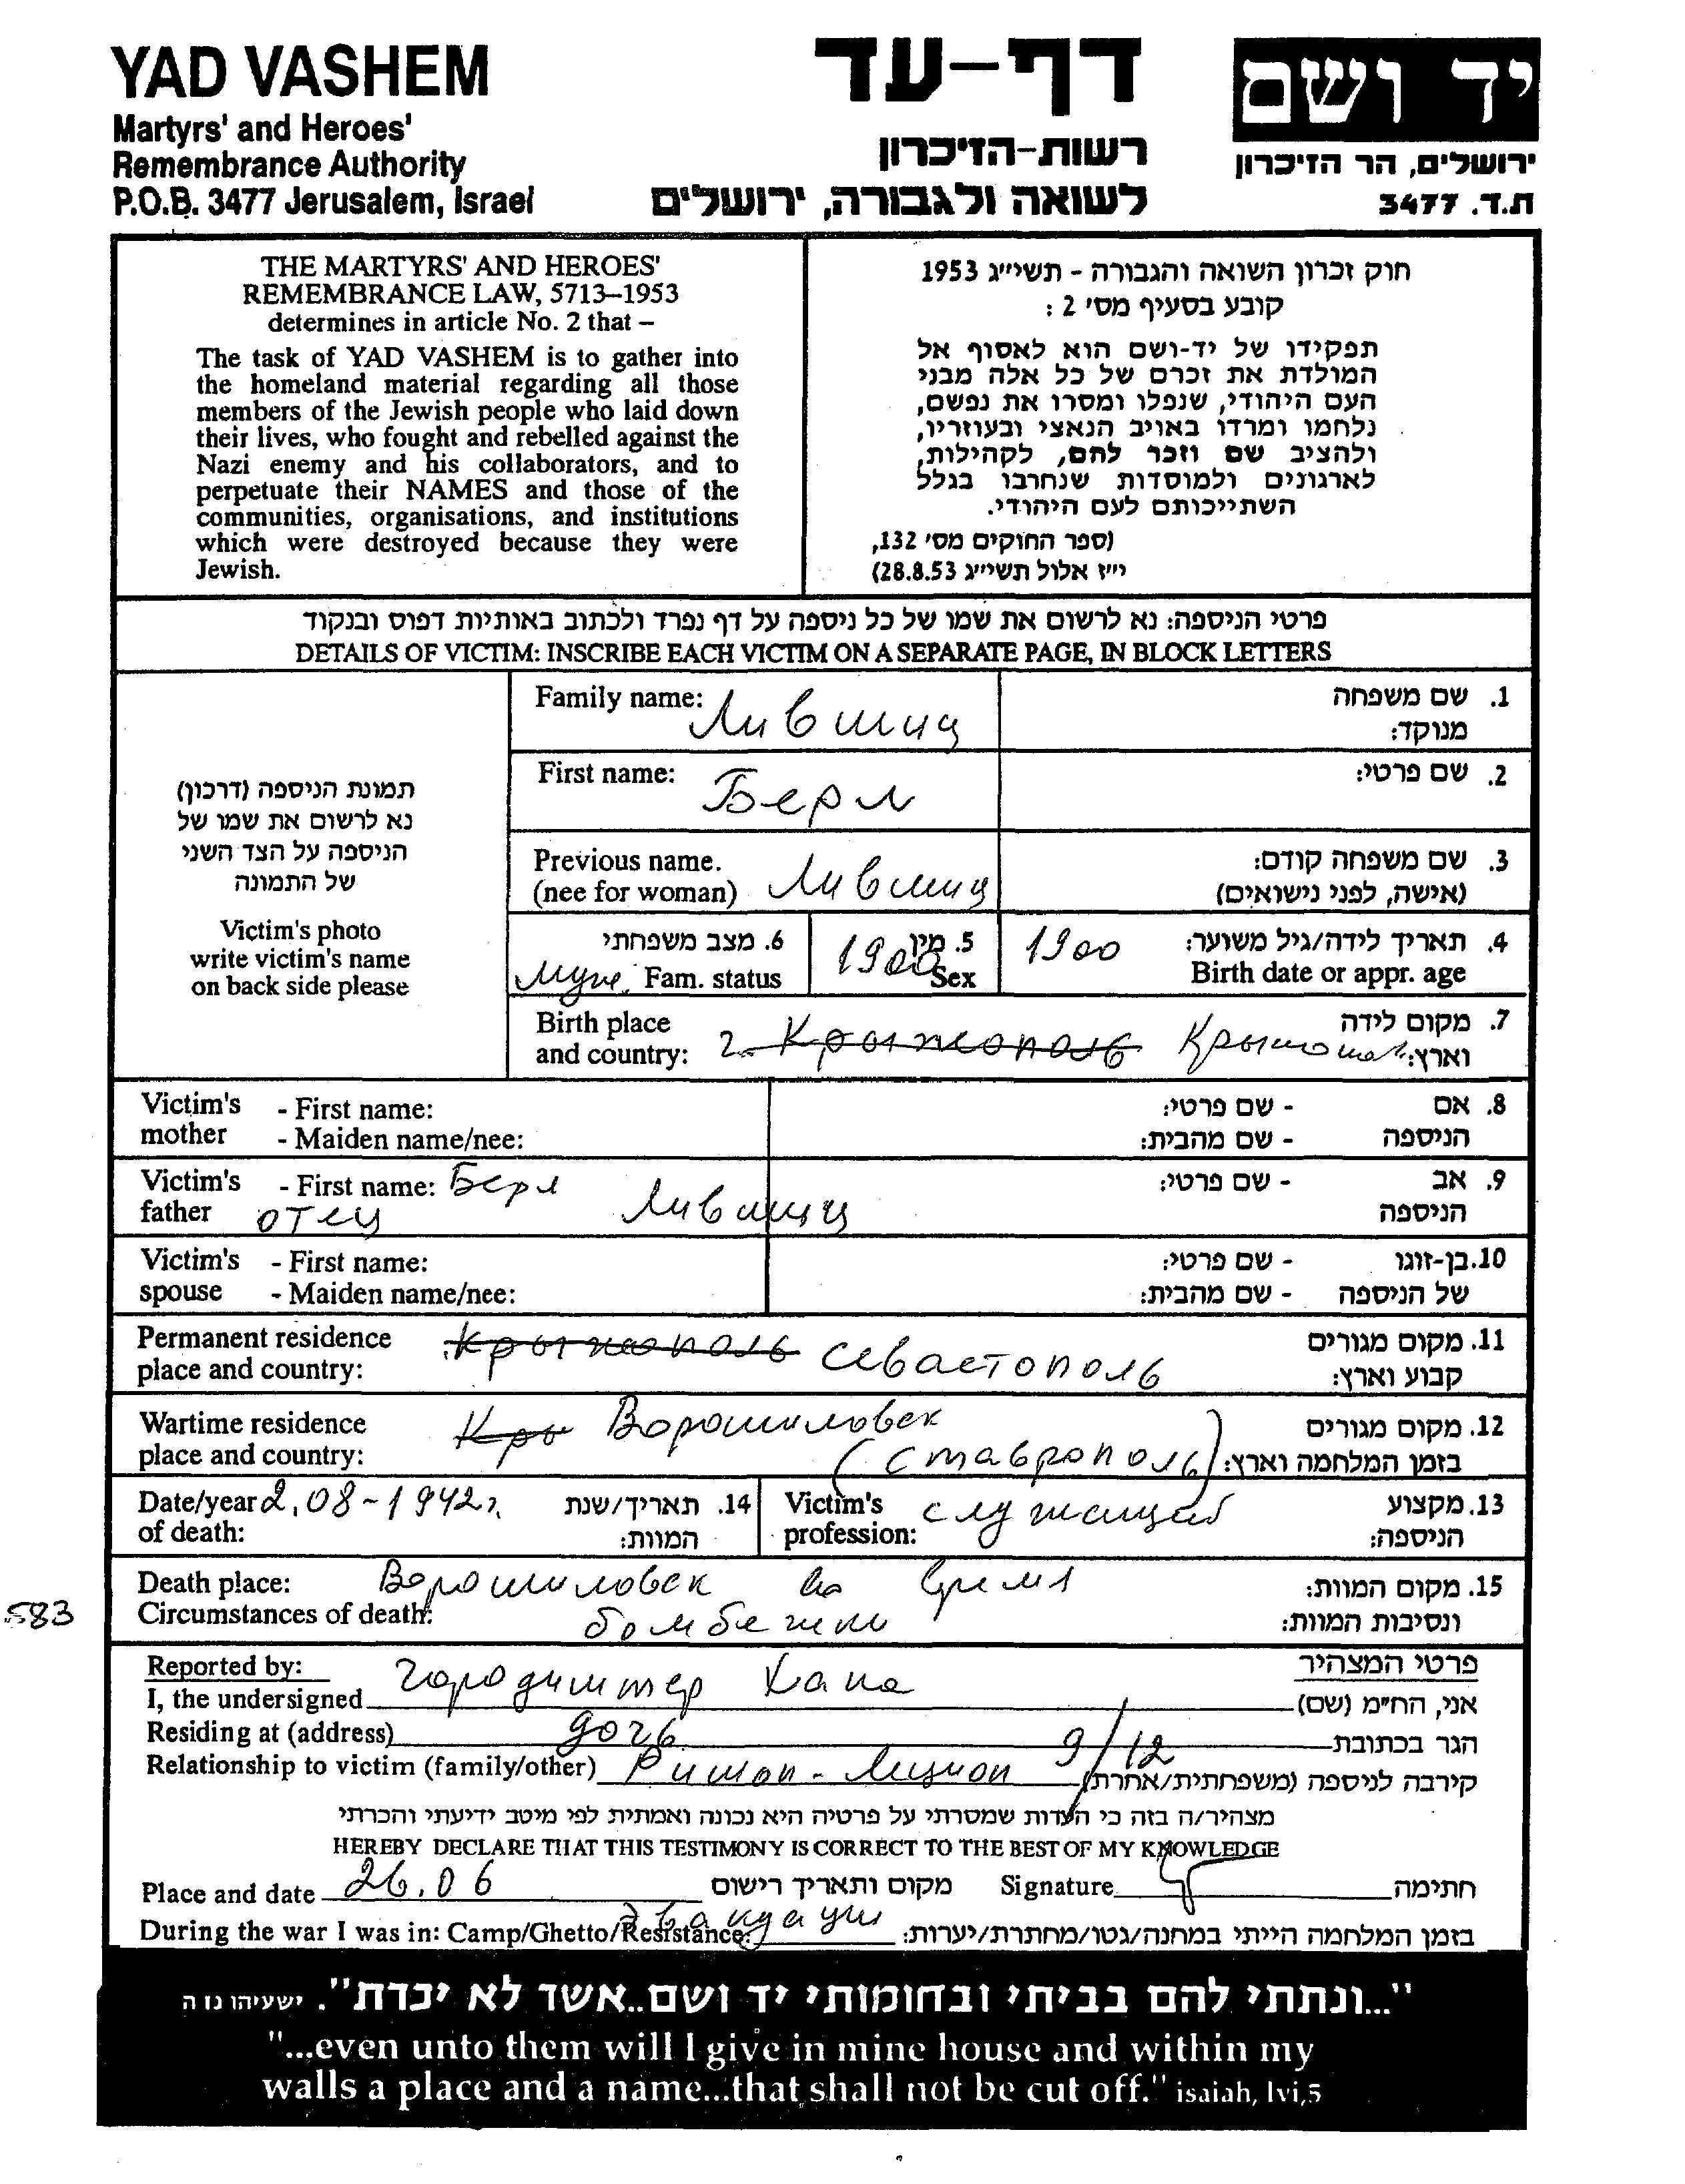 YAD VASHEM
Martyrs' and Heroes'
Remembrance Authority
P.O.B. 3477 Jerusalem, Israel
דף-עד
רשות-הזיכרון
לשואה ולגבורה, ירושלים
יד ושם
ירושלים, הר הזיכרון
ת.ד. 3477
THE MARTYRS' AND HEROES'
REMEMBRANCE LAW, 5713–1953
determines in article No. 2 that –
The task of YAD VASHEM is to gather into
the homeland material regarding all those
members of the Jewish people who laid down
their lives, who fought and rebelled against the
Nazi enemy and his collaborators, and to
perpetuate their NAMES and those of the
communities, organisations, and institutions
which were destroyed because they were
Jewish.
חוק זכרון השואה והגבורה - תשי״ג 1953
קובע בסעיף מס' 2 :
תפקידו של יד-ושם הוא לאסוף אל
המולדת את זכרם של כל אלה מבני
העם היהודי, שנפלו ומסרו את נפשם,
נלחמו ומרדו באויב הנאצי ובעוזריו,
ולהציב שם וזכר להם, לקהילות,
לארגונים ולמוסדות שנחרבו בגלל
השתייכותם לעם היהודי.
(ספר החוקים מס' 132,
י״ז אלול תשי״ג 28.8.53)
פרטי הניספה: נא לרשום את שמו של כל ניספה על דף נפרד ולכתוב באותיות דפוס ובנקוד
DETAILS OF VICTIM: INSCRIBE EACH VICTIM ON A SEPARATE PAGE, IN BLOCK LETTERS
תמונת הניספה (דרכון)
נא לרשום את שמו של
הניספה על הצד השני
של התמונה
Victim's photo
write victim's name
on back side please
Family name: Лившиц 1. שם משפחה
מנוקד:
First name: Берл 2. שם פרטי:
Previous name. Лившиц 3. שם משפחה קודם:
(nee for woman) (אישה, לפני נישואים)
6. מצב משפחתי 5. מין 1900 4. תאריך לידה/גיל משוער:
Fam. status 1900 Sex Birth date or appr. age
Birth place 7. מקום לידה
and country: г. Крыжополь וארץ:
Victim's - First name: - שם פרטי: 8. אם
mother - Maiden name/nee: - שם מהבית: הניספה
Victim's - First name: Берл Лившиц - שם פרטי: 9. אב
father отец הניספה
Victim's - First name: - שם פרטי: 10. בן-זוגו
spouse - Maiden name/nee: - שם מהבית: של הניספה
Permanent residence Крыжополь Севастополь 11. מקום מגורים
place and country: קבוע וארץ:
Wartime residence Кры Ворошиловск 12. מקום מגורים
place and country: (Ставрополь) בזמן המלחמה וארץ:
Date/year 2.08-1942г. 14. תאריך/שנת Victim's служащий 13. מקצוע
of death: המוות: profession: הניספה:
Death place: Ворошиловск во время 15. מקום המוות:
Circumstances of death: бомбежки ונסיבות המוות:
583
Reported by: פרטי המצהיר
I, the undersigned Городиштер Хана אני, הח״מ (שם)
Residing at (address) дочь הגר בכתובת
Relationship to victim (family/other) Ришон-Лецион 9/12 קירבה לניספה (משפחתית/אחרת)
מצהיר/ה בזה כי העדות שמסרתי על פרטיה היא נכונה ואמתית לפי מיטב ידיעתי והכרתי
HEREBY DECLARE THAT THIS TESTIMONY IS CORRECT TO THE BEST OF MY KNOWLEDGE
Place and date 26.06 מקום ותאריך רישום Signature חתימה
During the war I was in: Camp/Ghetto/Resistance: эвакуации בזמן המלחמה הייתי במחנה/גטו/מחתרת/יערות:
"...ונתתי להם בביתי ובחומותי יד ושם..אשר לא יכרת". ישעיהו נו ה
"...even unto them will I give in mine house and within my
walls a place and a name...that shall not be cut off." isaiah, lvi,5